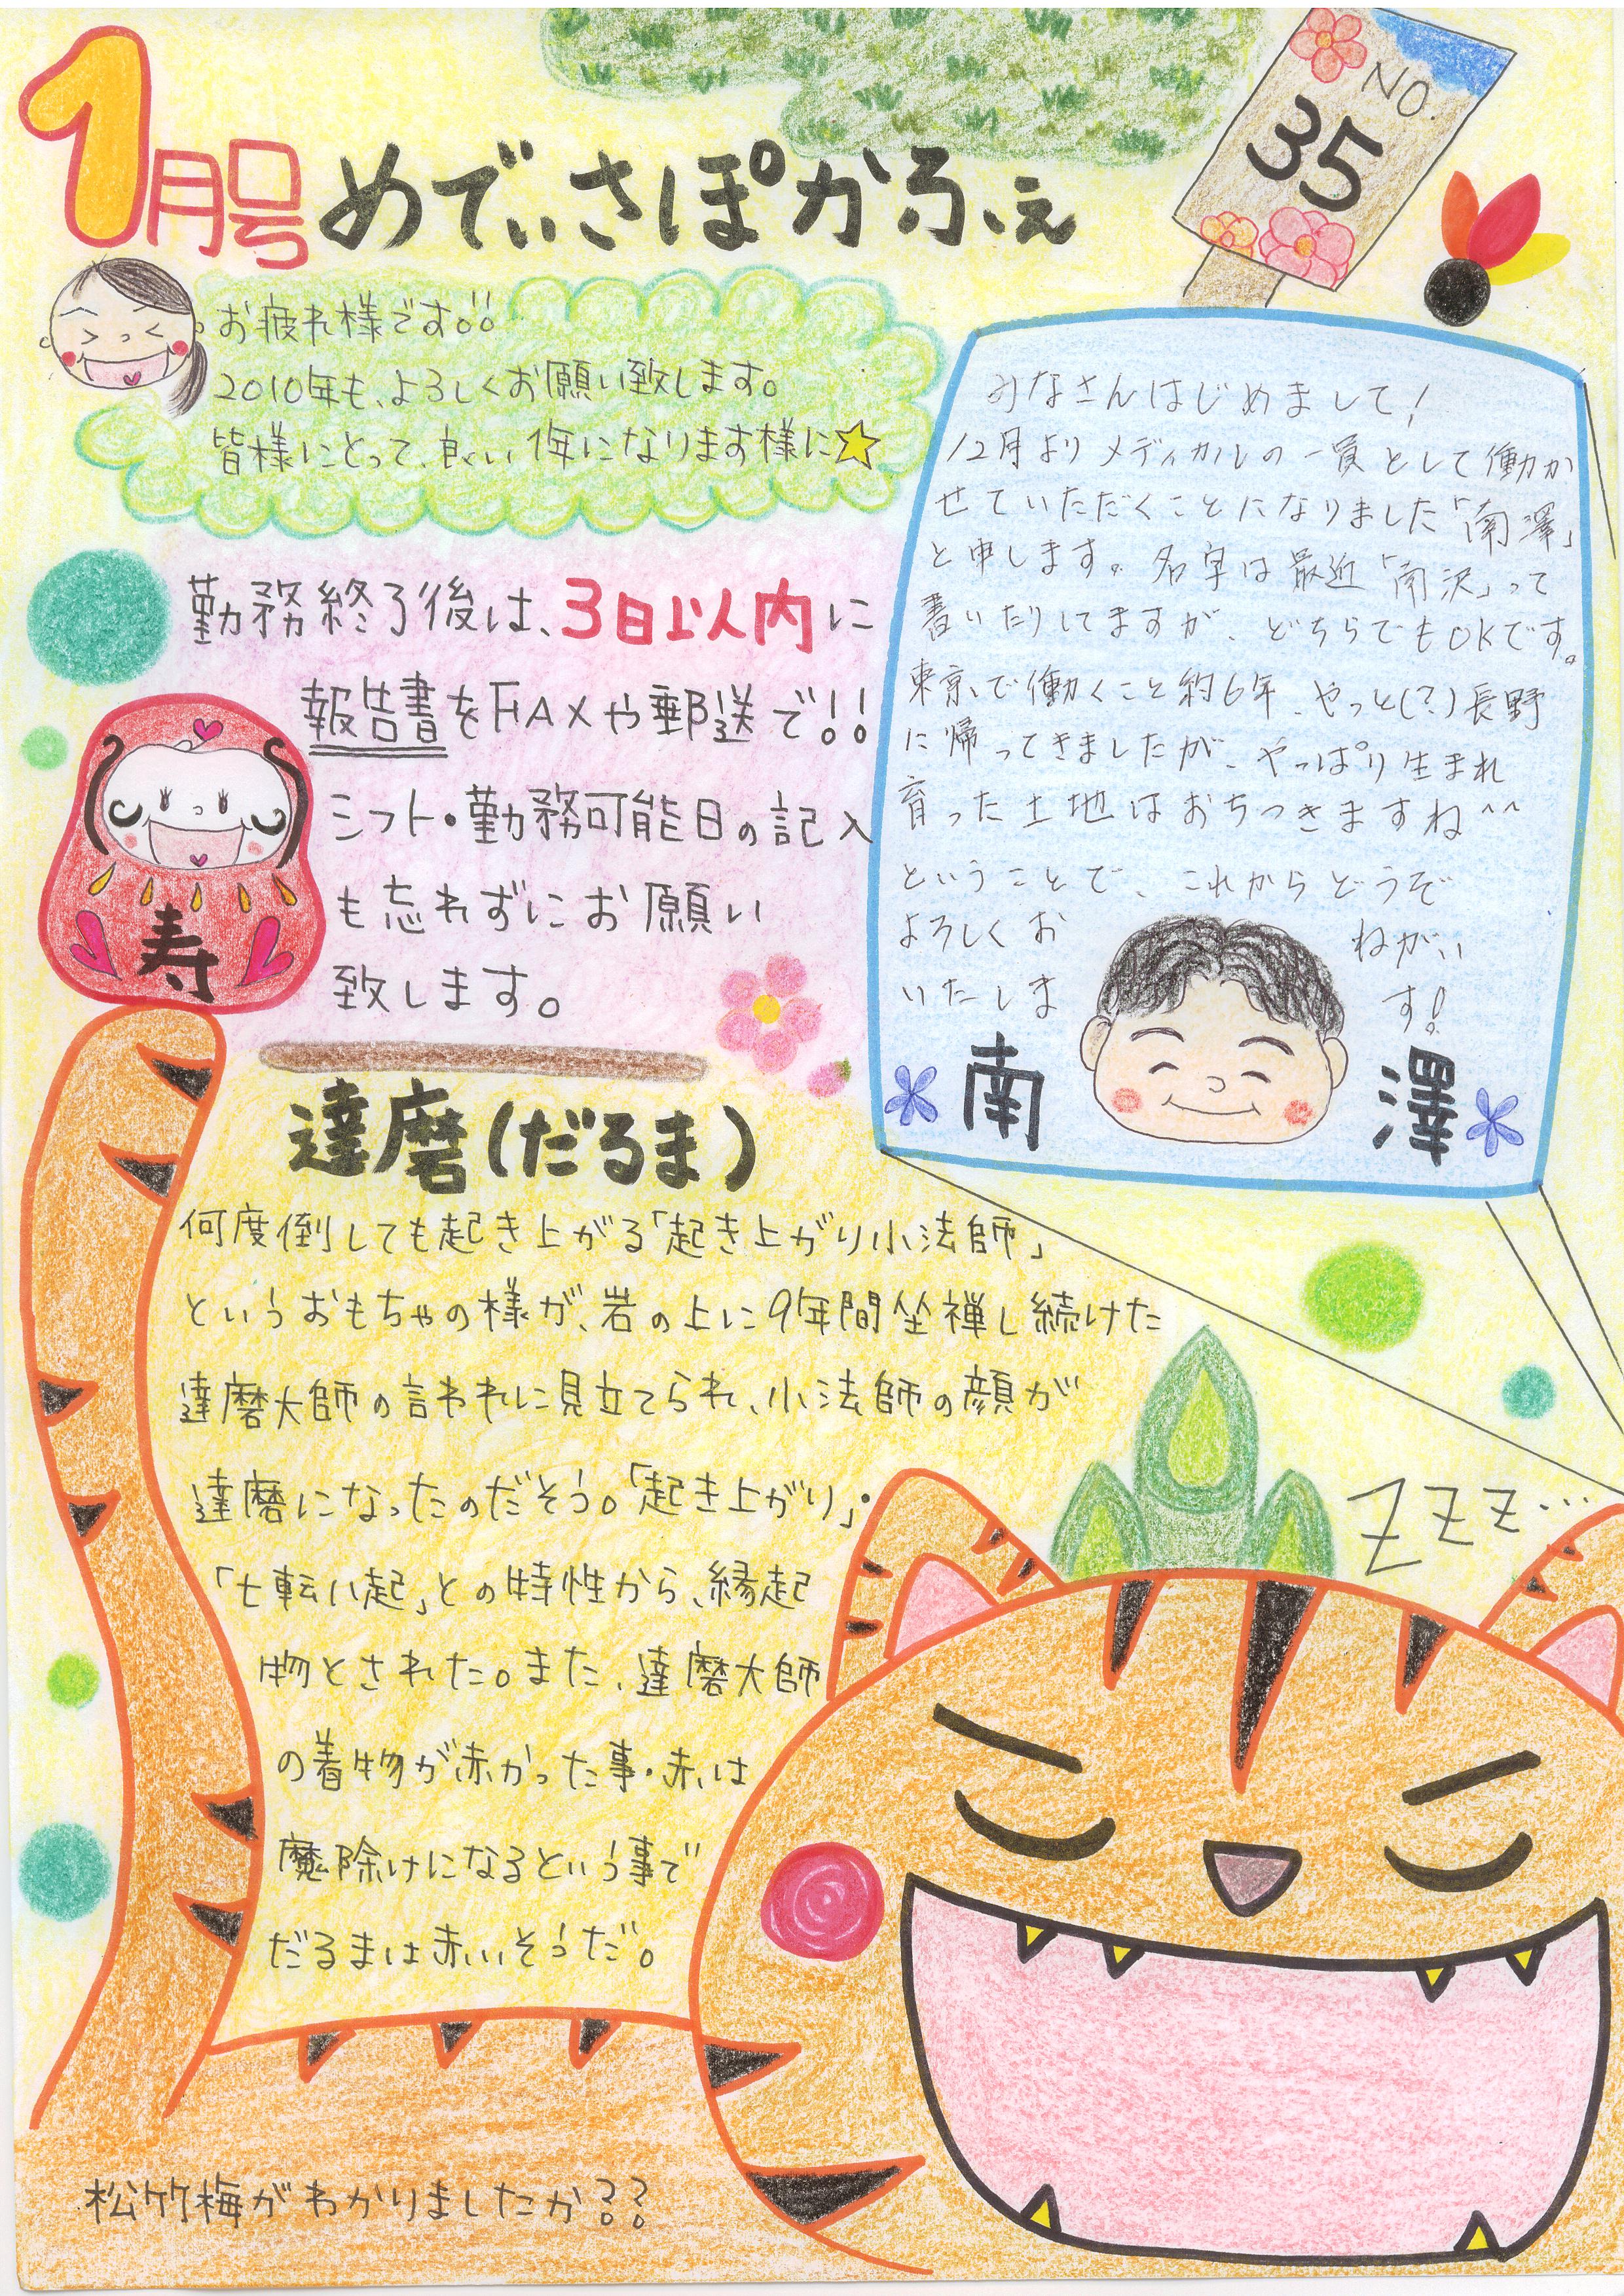 1月号 めでぃさぽかふぇ
NO.
35
お疲れ様です!!
2010年も、よろしくお願い致します。
皆様にとって、良い1年になります様に☆
みなさんはじめまして!
12月よりメディカルの一員として働か
せていただくことになりました「南澤」
と申します。名字は最近「南沢」って
書いたりしてますが、どちらでもOKです。
東京で働くこと約6年、やっと(?)長野
に帰ってきましたが、やっぱり生まれ
育った土地はおちつきますね^^
ということで、これからどうぞ
よろしくおねがい
いたします!
南澤
勤務終了後は、3日以内に
報告書をFAXや郵送で!!
シフト・勤務可能日の記入
も忘れずにお願い
致します。
寿
達磨(だるま)
何度倒しても起き上がる「起き上がり小法師」
というおもちゃの様が、岩の上に9年間坐禅し続けた
達磨大師の言われに見立てられ、小法師の顔が
達磨になったのだそう。「起き上がり」・
「七転八起」との特性から、縁起
物とされた。また、達磨大師
の着物が赤かった事・赤は
魔除けになるという事で
だるまは赤いそうだ。
ZZZ…
松竹梅がわかりましたか??